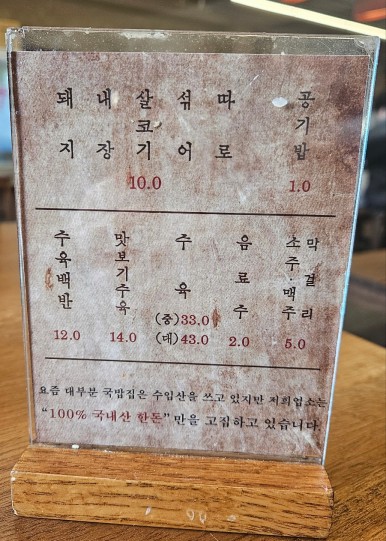 돼지
내장
살코기
섞어
따로
10.0
공기밥
1.0
수육백반
12.0
맛보기수육
14.0
수육
(중)33.0
(대)43.0
음료수
2.0
소주·맥주
막걸리
5.0
요즘 대부분 국밥집은 수입산을 쓰고 있지만 저희업소는
"100% 국내산 한돈"만을 고집하고 있습니다.